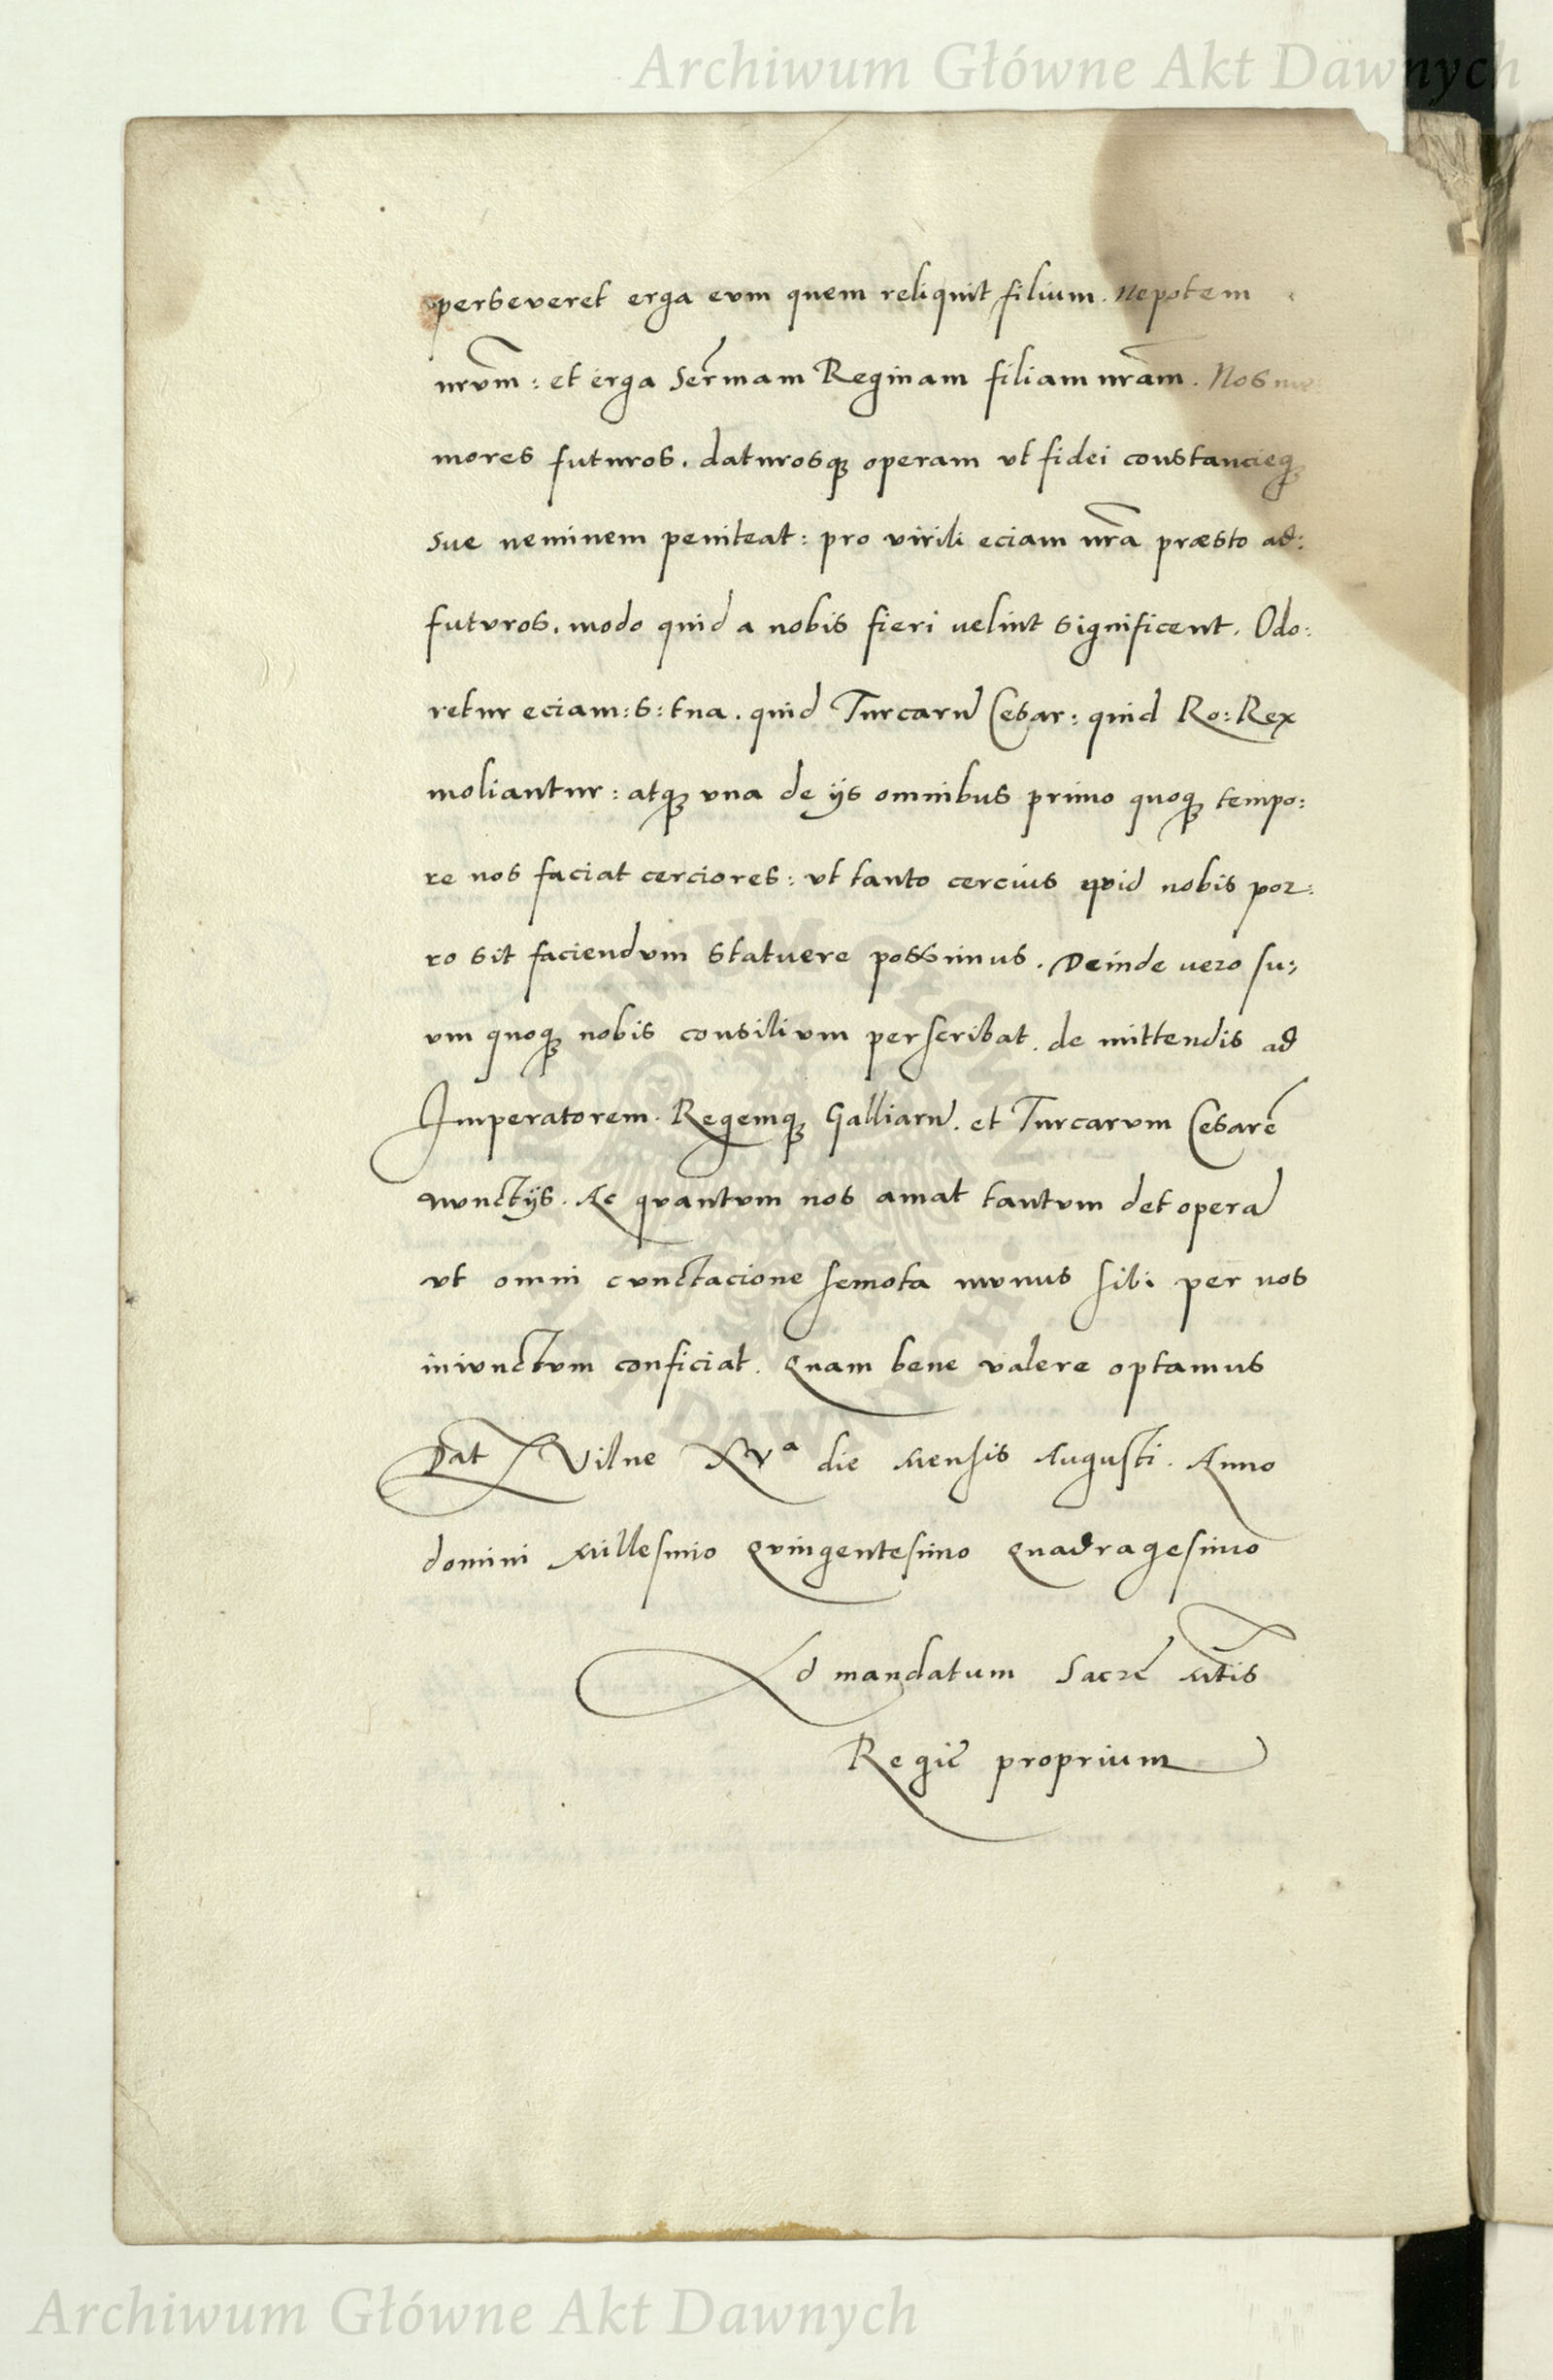 Archiwum Główne Akt Dawnych
perseveret erga eum quem reliquit filium. Nepotem
nrūm: et erga Serm̄am Reginam filiam nrām. Nos me
mores futuros. daturosqꝫ operam ut fidei constancieqꝫ
sue neminem peniteat: pro virili eciam nrā præsto ad:
futuros. modo quid a nobis fieri uelint significent. Odo:
retur eciam: s: tua. quid Turcarū Cesar: quid Ro: Rex
moliantur: atqꝫ vna de ijs omnibus primo quoqꝫ tempo:
re nos faciat cerciores: vt tanto cercius quid nobis por:
ro sit faciendum statuere possimus. Deinde uero su:
um quoqꝫ nobis consilium perscribat. de mittendis ad
Imperatorem. Regemqꝫ Galliarū. et Turcarum Cesarē
nunctijs. Ac quantum nos amat tantum det operā
vt omni cunctacione semota munus sibi per nos
iniunctum conficiat. Quam bene valere optamus
Dat Vilne XVª die Mensis Augusti. Anno
domini Millesimo Quingentesimo Quadragesimo
Ad mandatum Sacrē Mtis
Regiē proprium
ARCHIWUM GŁÓWNE AKT DAWNYCH
Archiwum Główne Akt Dawnych